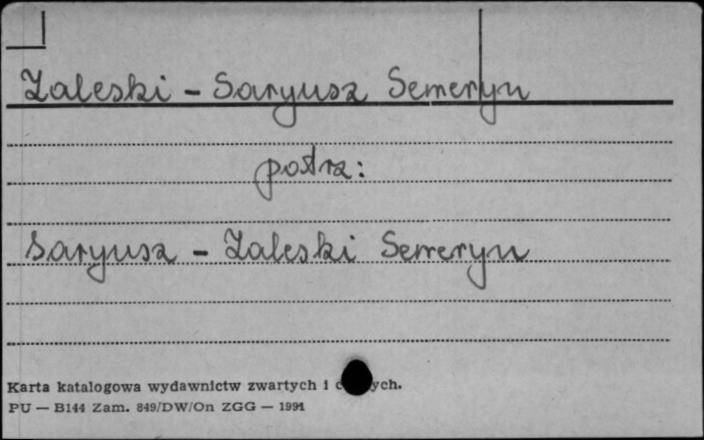 Zaleski - Saryusz Seweryn
patrz:
Saryusz - Zaleski Seweryn
Karta katalogowa wydawnictw zwartych i
PU — B144 Zam. 849/DW/On ZGG — 1991